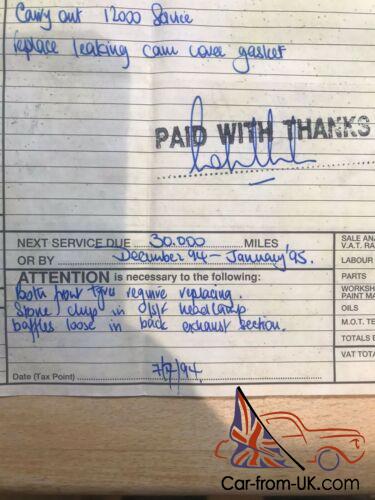 Carry out 12000 Service
replace leaking cam cover gasket
PAID WITH THANKS
NEXT SERVICE DUE 30.000 MILES
OR BY December 94 - January '95.
ATTENTION is necessary to the following:
Both front Tyres require replacing.
Stone chip in o/s/f headlamp
baffles loose in back exhaust section.
7/7/94
Date (Tax Point)
SALE AN
V.A.T. RA
LABOUR
PARTS
WORKSH
PAINT MA
OILS
M.O.T. TE
TOTALS E
VAT TOTA
Car-from-UK.com